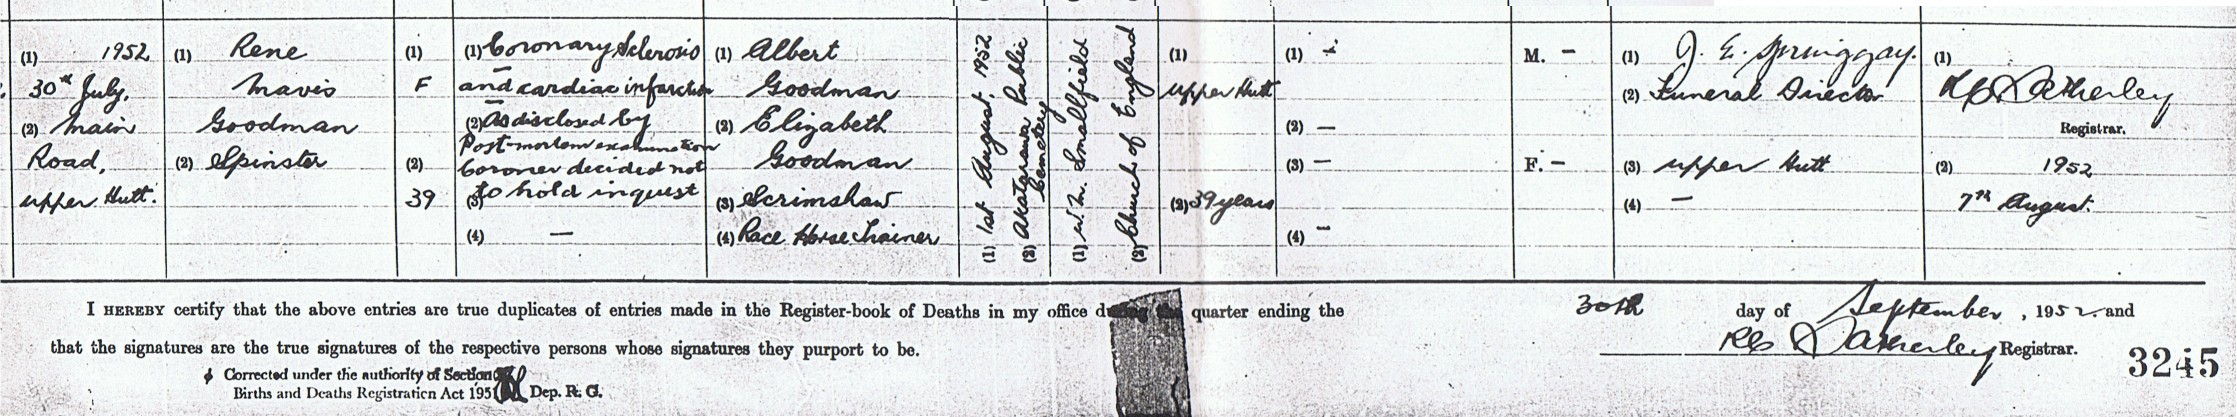 (1) 1952
30th July,
(2) Main
Road,
Upper Hutt.
(1) Rene
Mavis
Goodman
(2) Spinster
(1)
F
(2)
39
(1) Coronary Sclerosis
and cardiac infarction
(2) As disclosed by
Post-mortem examination
Coroner decided not
(3) to hold inquest
(4) —
(1) Albert
Goodman
(2) Elizabeth
Goodman
(3) Scrimshaw
(4) Race Horse Trainer
(1) 1st August, 1952
(2) Akatarawa Public
Cemetery
(1) W. M. Smallfield
(2) Church of England
(1)
Upper Hutt
(2) 39 years
(1) -
(2) —
(3) —
(4) -
M. -
F. -
(1) J. E. Springgay.
(2) Funeral Director
(3) Upper Hutt
(4) —
(1)
Registrar.
(2) 1952
7th August.
I HEREBY certify that the above entries are true duplicates of entries made in the Register-book of Deaths in my office during the quarter ending the 30th day of September, 1952 and
that the signatures are the true signatures of the respective persons whose signatures they purport to be.
Registrar.
3245
Corrected under the authority of Section
Births and Deaths Registration Act 1951 Dep. R. G.